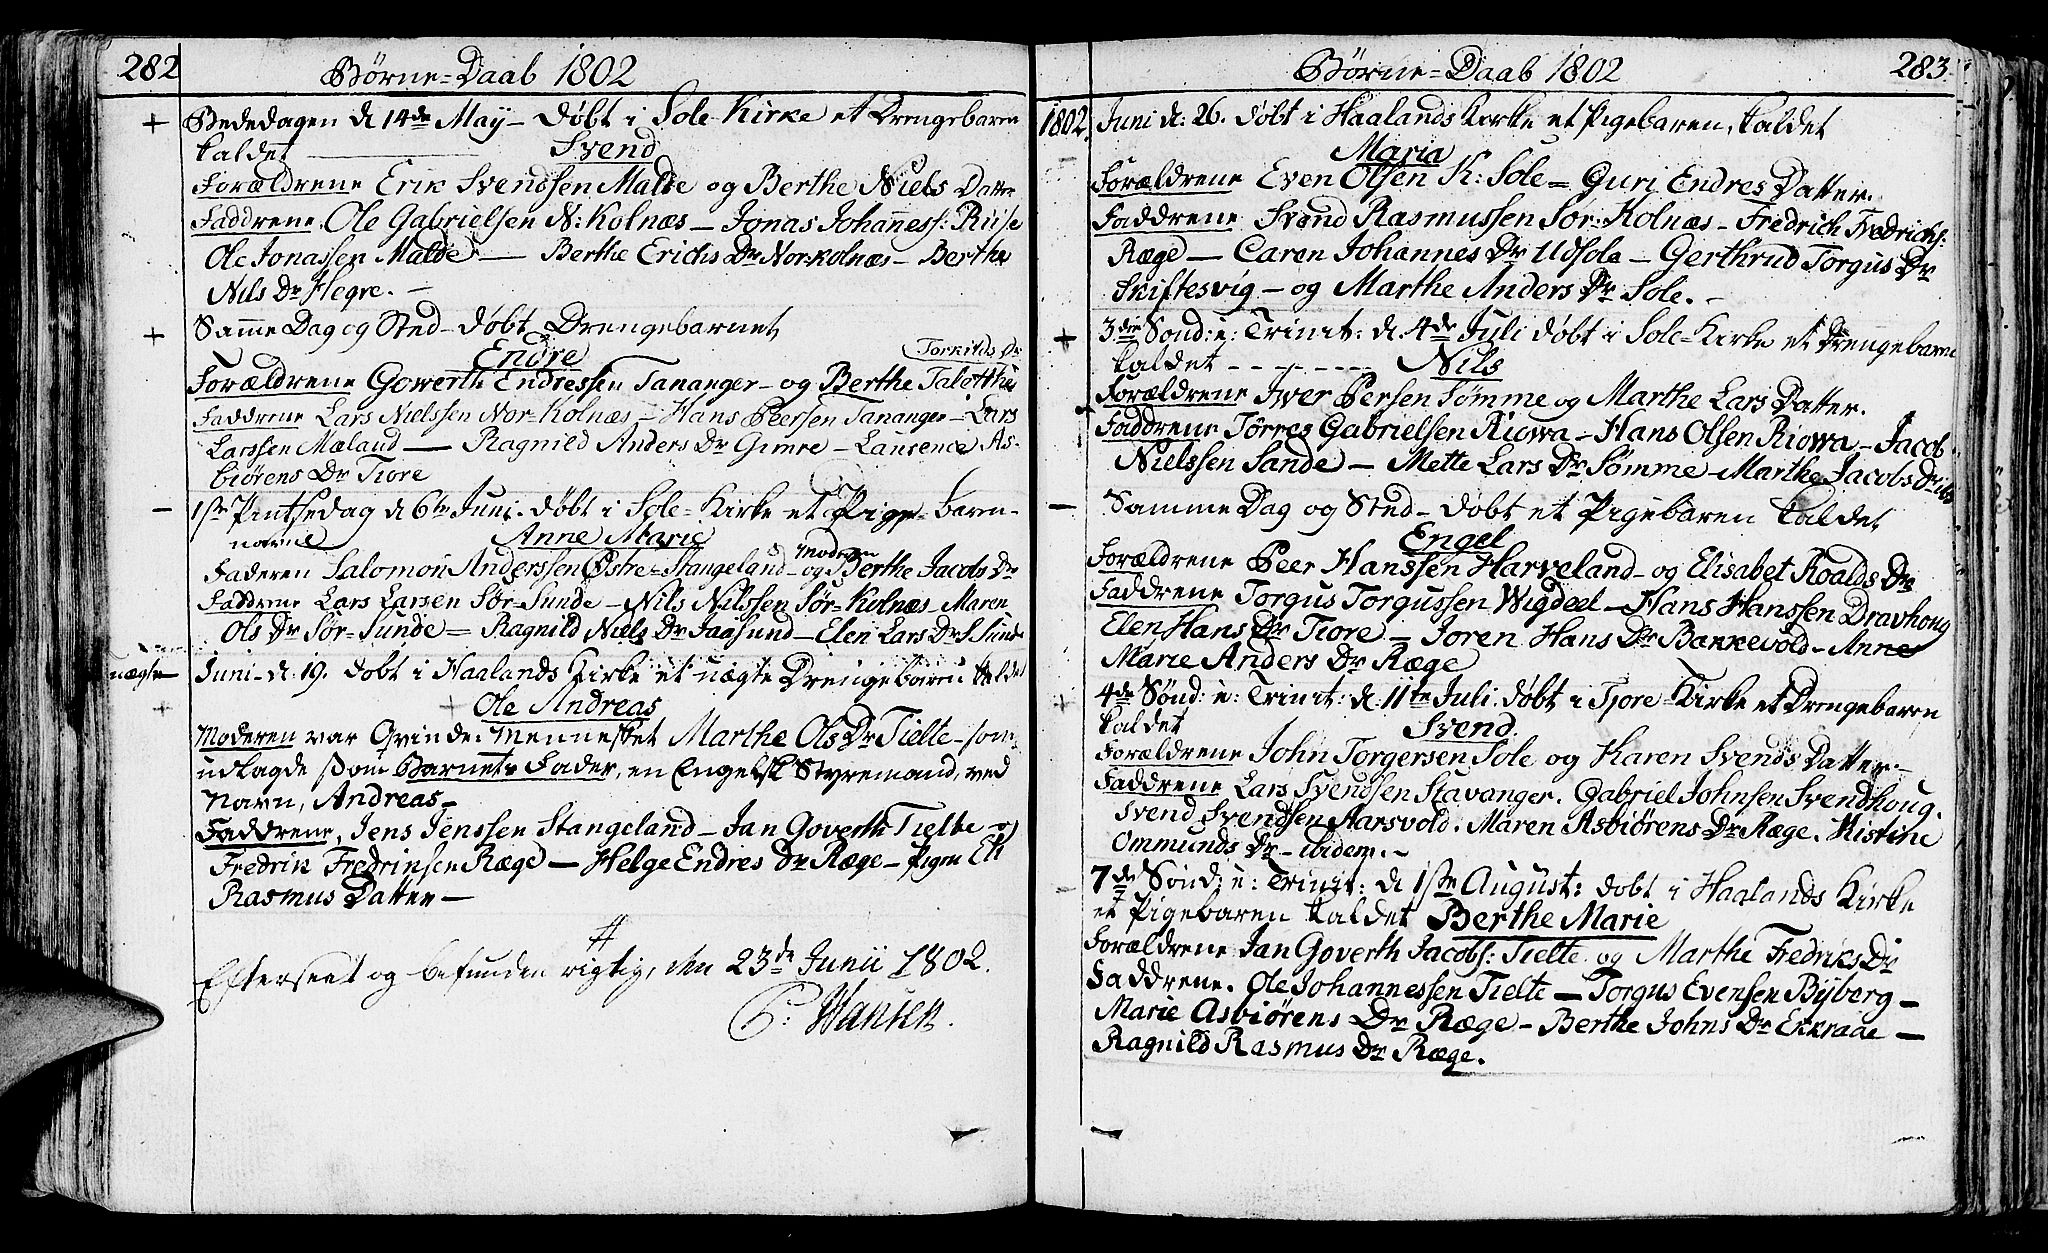 282
Børne-Daab 1802
Bededagen d 14de May - døbt i Sole-Kirke et Drengebaren
kaldet Svend
Forældrene Erik Svendssen Malde og Berthe Niels Datter
Faddrene Ole Gabrielsen N: Kolnæs - Jonas Johanness: Riise
Ole Jonassen Malde - Berthe Erichs Dr Nor-kolnæs - Berthe
Nils Dr Hegre. -
Samme Dag og Sted - døbt Drengebarnet
Endre
Torkilds Dr
Forældrene Gowerth Endressen Tananger - og Berthe
Faddrene Lars Nielssen Nor-Kolnæs - Hans Peersen Tananger - Lars
Larssen Mæland - Ragnild Anders Dr Gimre - Laurence As-
biørens Dr Tiore
1ste Pintsedag d 6te Juni. døbt i Sole-Kirke et Pige-baren-
navne Anne Marie
Faderen Salomon Anderssen Østre-Stangeland - og Moderen Berthe Jacobs Dr
Faddrene Lars Larsen Sør-Sunde - Nils Nilssen Sør-Kolnæs - Maren
Ols Dr Sør-Sunde = Ragnild Niels Dr Jaasund - Elen Lars Dr S. Sunde
uægte
Juni - d. 19. døbt i Haalands Kirke et uægte Drengebaren kaldet
Ole Andreas
Moderen var Qvinde-Mennesket Marthe Ols Dr Tielte - som
udlagde som Barnets Fader, en Engelsk Styremand, ved
Navn, Andreas -
Faddrene, Jens Jenssen Stangeland - Jan Goverth Tielte og
Fredrik Fredrinsen Ræge - Helge Endres Dr Ræge - Pigen Eli
Rasmus Datter -
Efterseet og befunden rigtig, den 23de Junii 1802.
P: Hansen.
Børne-Daab 1802
283.
1802. Juni d: 26. døbt i Haalands Kirke et Pigebaren, kaldet
Maria
Forældrene Even Olsen K: Sole = Guri Endres Datter.
Faddrene Svend Rasmussen Sør-Kolnæs - Fredrich Fredrichs:
Ræge - Caren Johannes Dr Udsole - Gerthrud Torgus Dr
Skiftesvig - og Marthe Anders Dr Sole. -
3die Sønd: e: Trinit: d. 4de Juli døbt i Sole-Kirke et Drengebaren
kaldet - - - - - - - Nils
Forældrene Iver Persen Sømme og Marthe Lars Datter.
Faddrene Tørres Gabrielsen Riowa - Hans Olsen Riowa - Jacob
Nielssen Sande - Mette Lars Dr Sømme - Marthe Jacobs Dr
Samme Dag og Sted - døbt et Pigebaren kaldet
Engel
Forældrene Peer Hanssen Harveland - og Elisabet Roalds Dr
Faddrene Torgus Torgussen Wigdeel - Hans Hanssen Dravhoug
Elen Hans Dr Tiore - Joren Hans Dr Bakkevold - Anne
Marie Anders Dr Ræge
4de Sønd: e: Trinit: d: 11te Juli. døbt i Tjore-Kirke et Drengebaren
kaldet Svend.
Forældrene John Torgersen Sole og Karen Svends Datter. -
Faddrene Lars Svendsen Stavanger. Gabriel Johnsen Svendhoug.
Svend Svendsen Aarsvold. Maren Asbiørens Dr Ræge. Kistine
Ommunds Dr - ibidem. -
7de Sønd: e: Trinit: d 1ste August: døbt i Haalands Kirke
et Pigebaren kaldet Berthe Marie
Forældrene Jan Goverth Jacobs: Tielte og Marthe Fedriks Dr
Faddrene. Ole Johannessen Tielte - Torgus Evensen Byberg -
Marie Asbiørens Dr Ræge - Berthe Johns Dr Ekraae -
Ragnild Rasmus Dr Ræge.